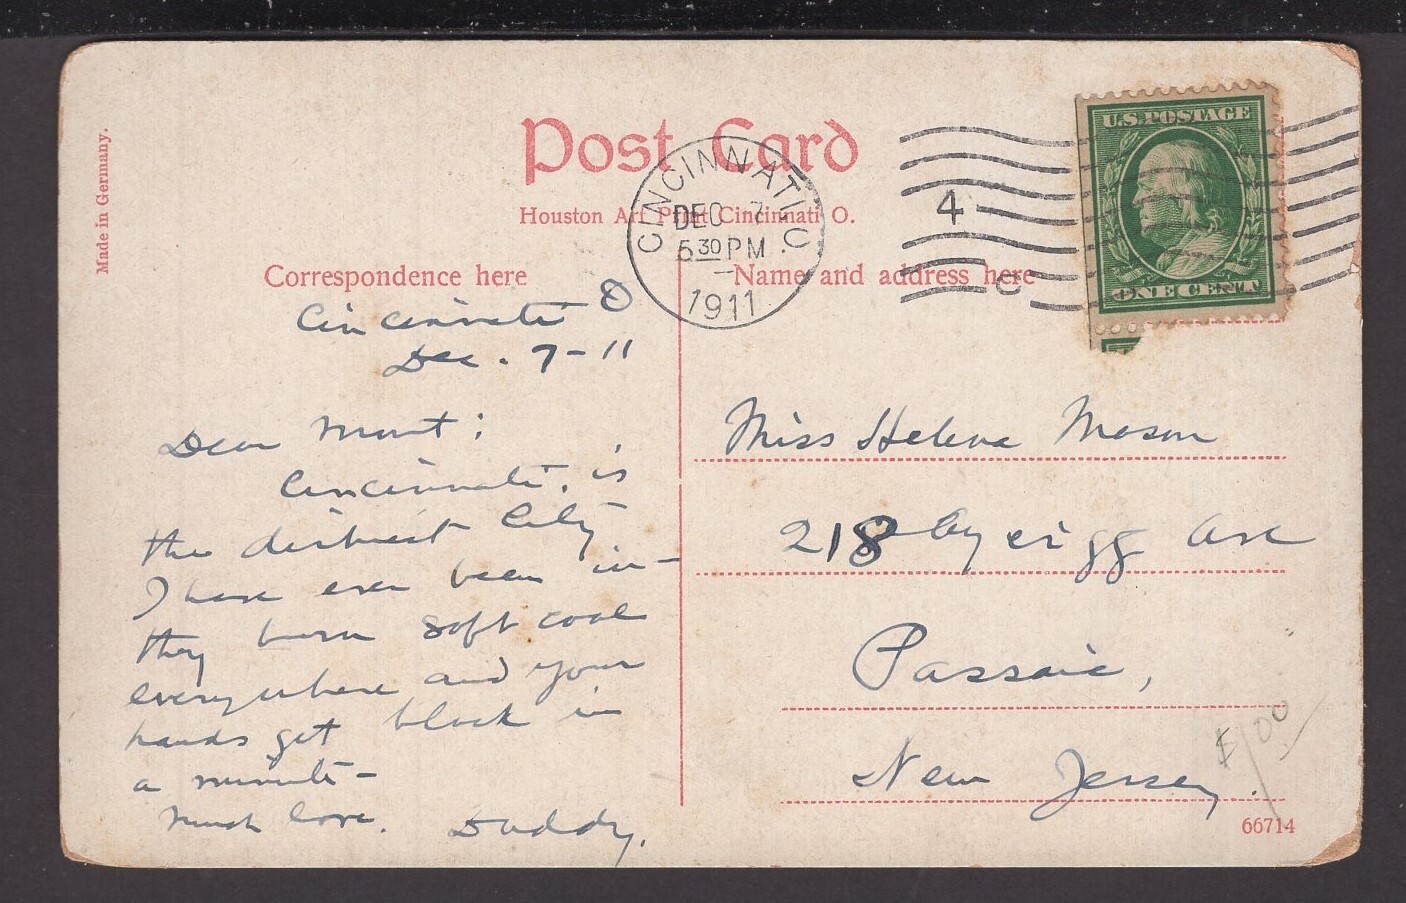 Made in Germany.
Post Card
Houston Art Print Cincinnati O.
CINCINNATI, O.
DEC 7
5 30 PM
1911
4
C
U.S. POSTAGE
ONE CENT
Correspondence here
Name and address here
Cincinnati O
Dec. 7-11
Dear
Cincinnati, is
the dirtiest City
I have ever been in—
they burn soft coal
everywhere and your
hands get black in
a minute—
Much love. Daddy.
Miss Helena Mason
218 Ave
Passaic,
New Jersey.
$1 00
66714